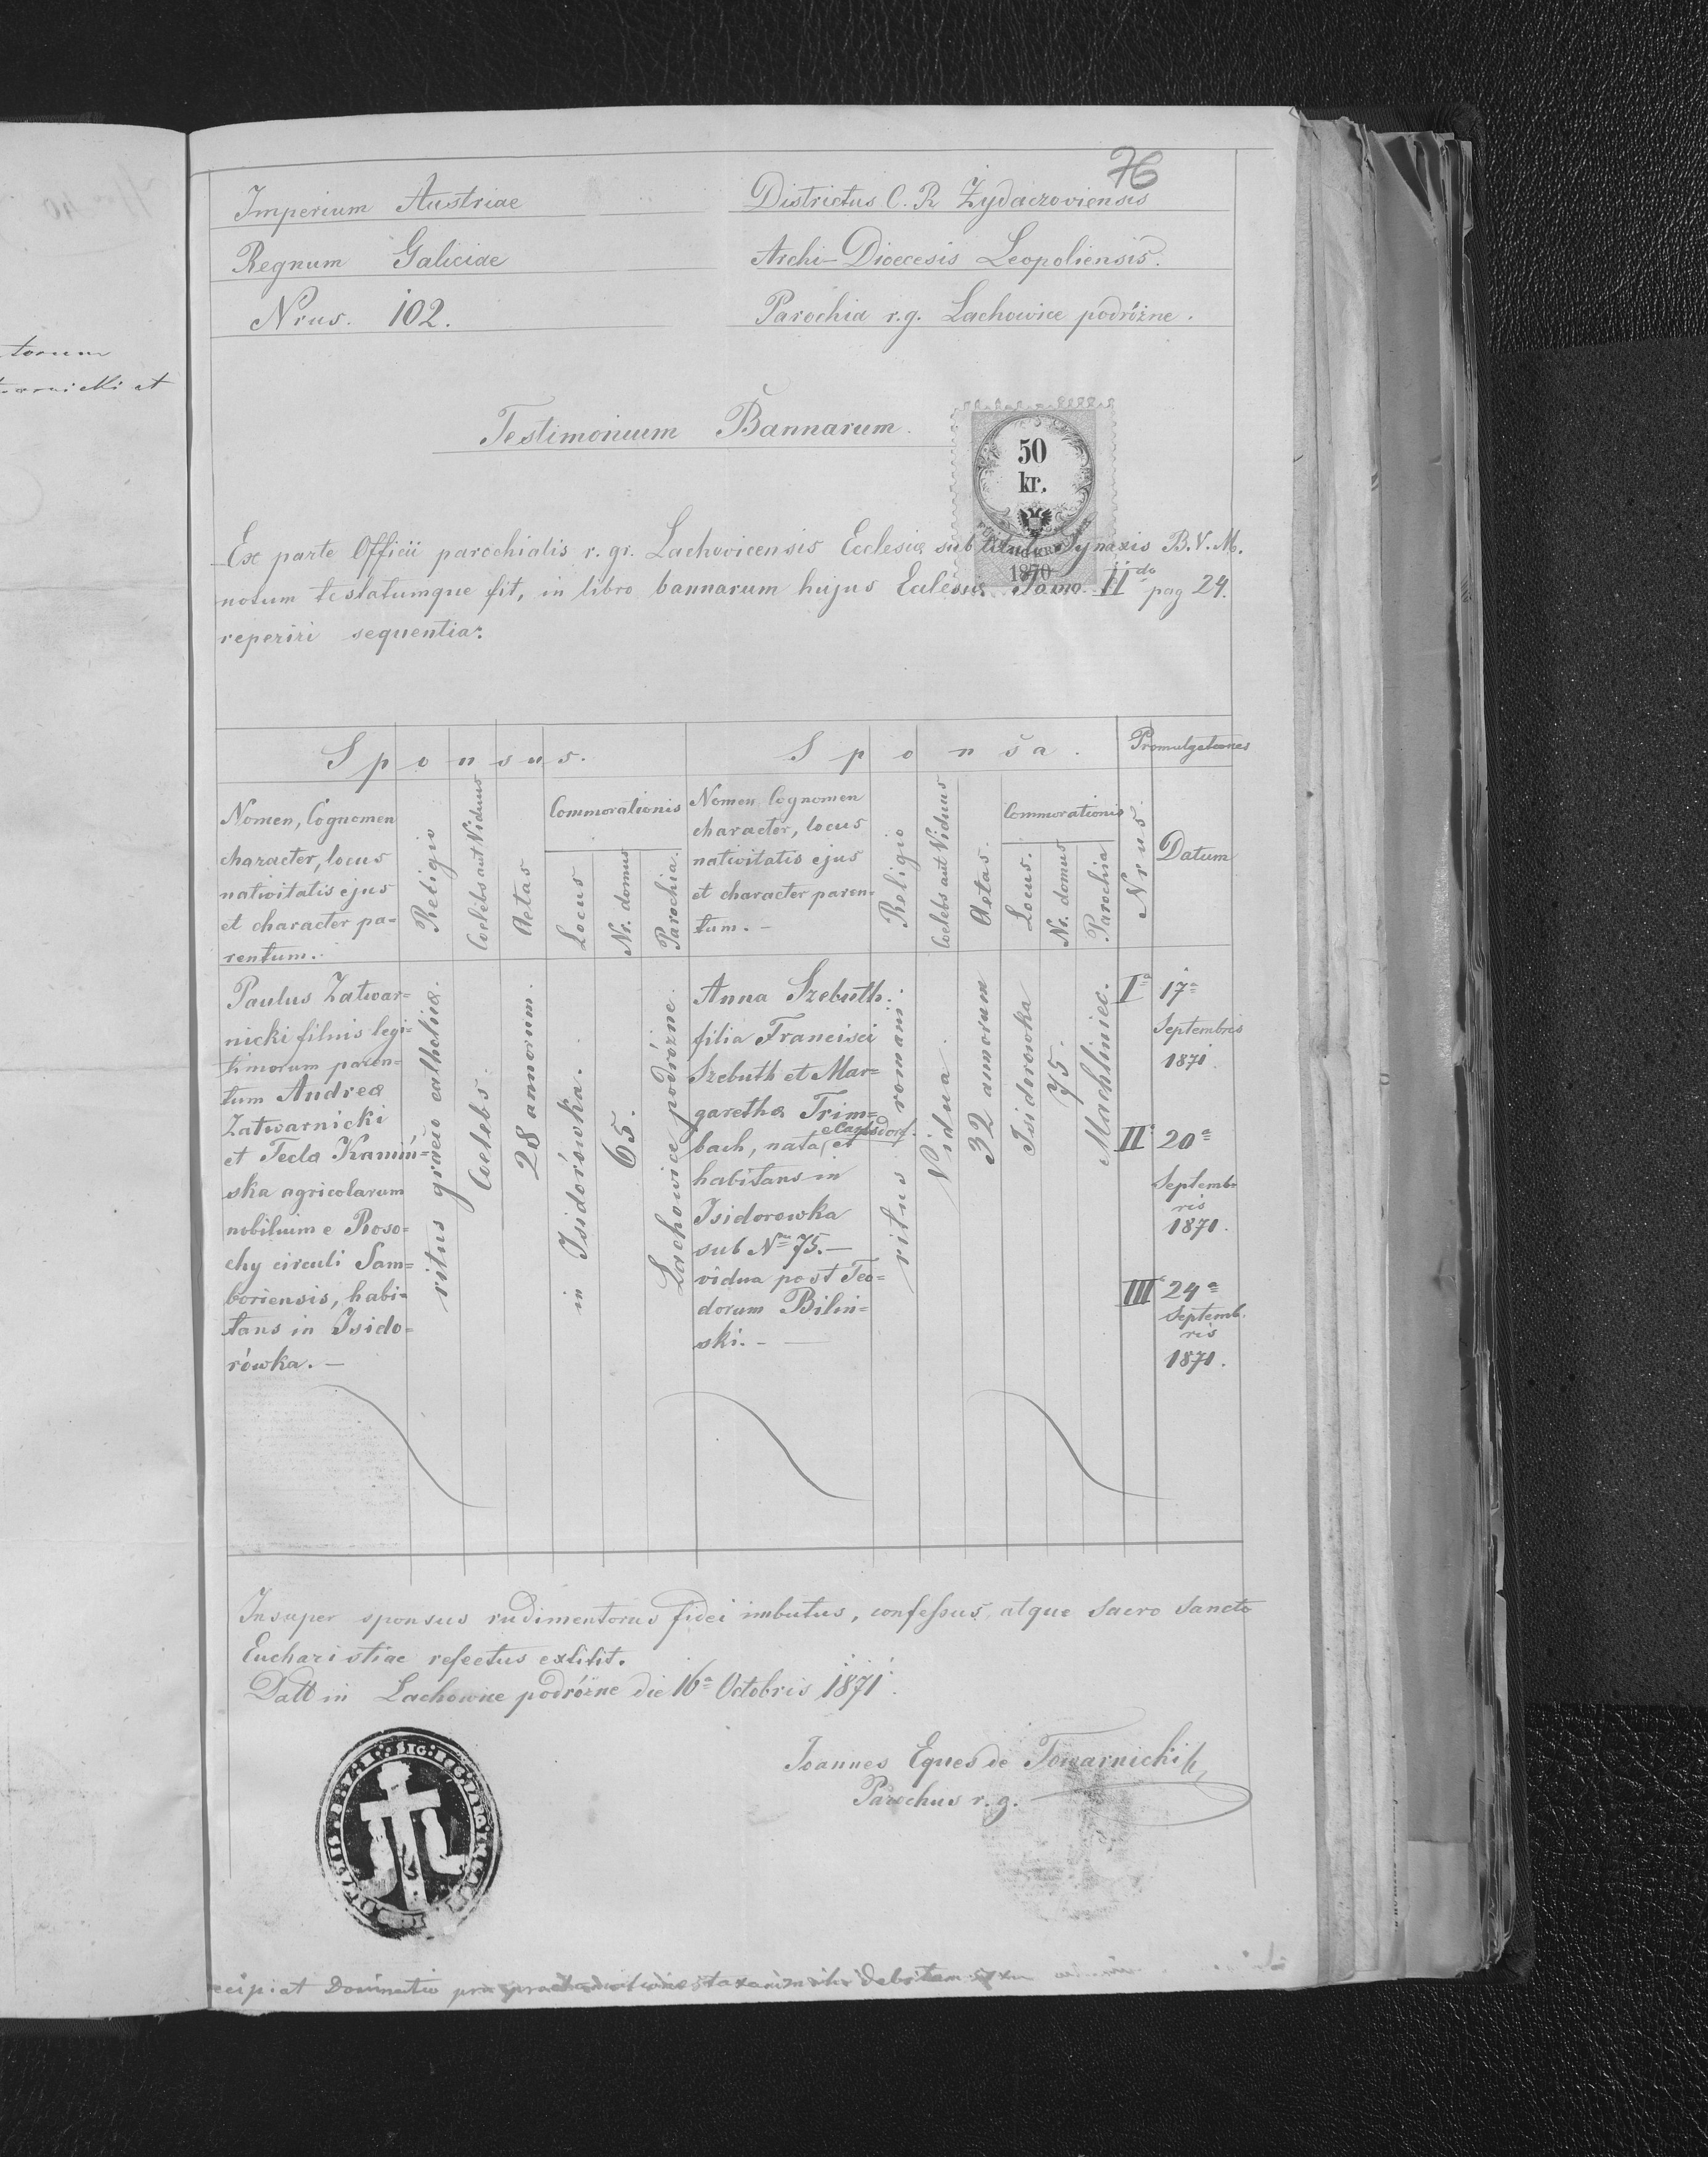 76
Imperium Austriae
Districtus C. R Żydaczoviensis
Regnum Galiciae
Archi-Dioecesis Leopoliensis.
Nrus. 102.
Parochia r.g. Lachowice podróżne.
torum
arnicki et
Testimonium Bannarum.
50
kr.
1870
Ex parte Officii parochialis r. gr. Lachovicensis Ecclesiæ sub titul Synaxis B.V.M.
notum testatumque fit, in libro bannarum hujus Ecclesiæ Tomo II do pag 24.
reperiri sequentia:
Sponsus.
Sponsa.
Promulgationes
Nomen, Cognomen
character, locus
nativitatis ejus
et character pa=
rentum.
Religio
Coelebs aut Viduus
Aetas
Commorationis
Locus
Nr. domus
Parochia.
Nomen Cognomen
character, locus
nativitatis ejus
et character paren=
tum. -
Religio
Coelebs aut Viduus
Aetas.
Commorationis
Locus.
Nr. domus
Parochia
Nrus.
Datum
Paulus Zatwar=
nicki filius legi=
timorum paren=
tum Andreæ
Zatwarnicki
et Tecla Kamiń=
ska agricolarum
nobilium e Roso=
chy circuli Sam=
boriensis, habi=
tans in Isido=
rówka. -
ritus græco catholicæ.
Coelebs.
28 annorum.
in Isidorówka.
65.
Lachowice podróżne.
Anna Szebuth.
filia Francisci
Szebuth et Mar=
garethæ Trim=
bach, nata e Caglsdorf. et
habitans in
Isidorowka
sub Nro 75. -
vidua post Teo=
dorum Bilin=
ski. -
ritus romani.
Vidua.
32 annorum
Isidorowka
75.
Machliniec.
Ia 17a
Septembris
1871
II. 20a
Septemb
ris
1871.
III. 24a
Septemb.
ris
1871.
Insuper sponsus rudimentorus fidei imbutus, confessus, atque Sacro Sancto
Eucharistiae refectus extitit.
Datt in Lachowice podróżne die 16a Octobris 1871.
Joannes Eques de Towarnicki
Parochus r. g.